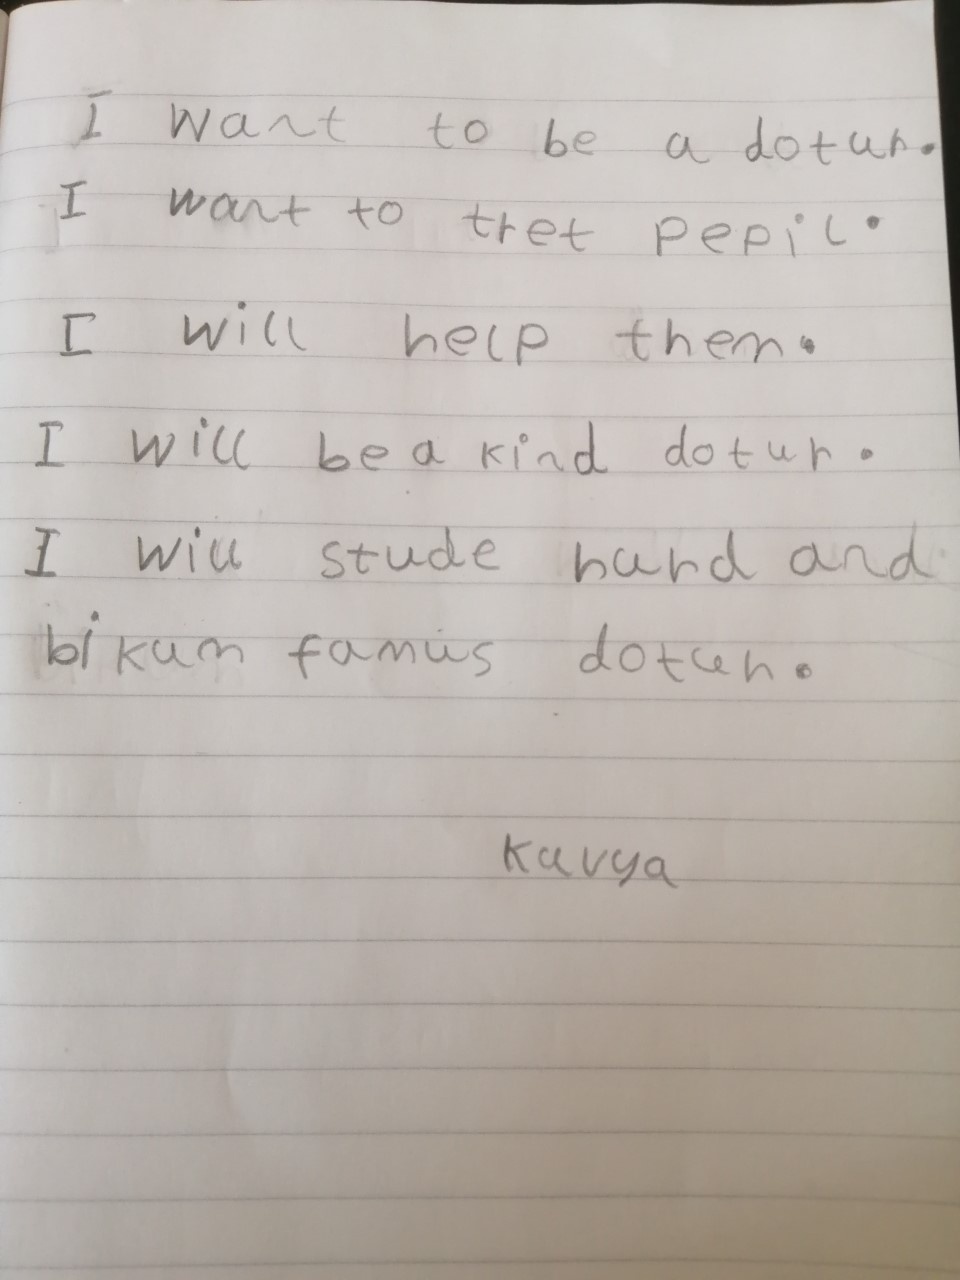 I want to be a dotur.
I want to tret pepil.
I will help them.
I will be a kind dotur.
I will stude hurd and
bikum famus dotur.
Kavya